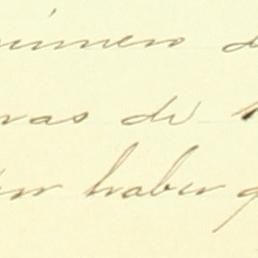 número d
ras de
por haber q